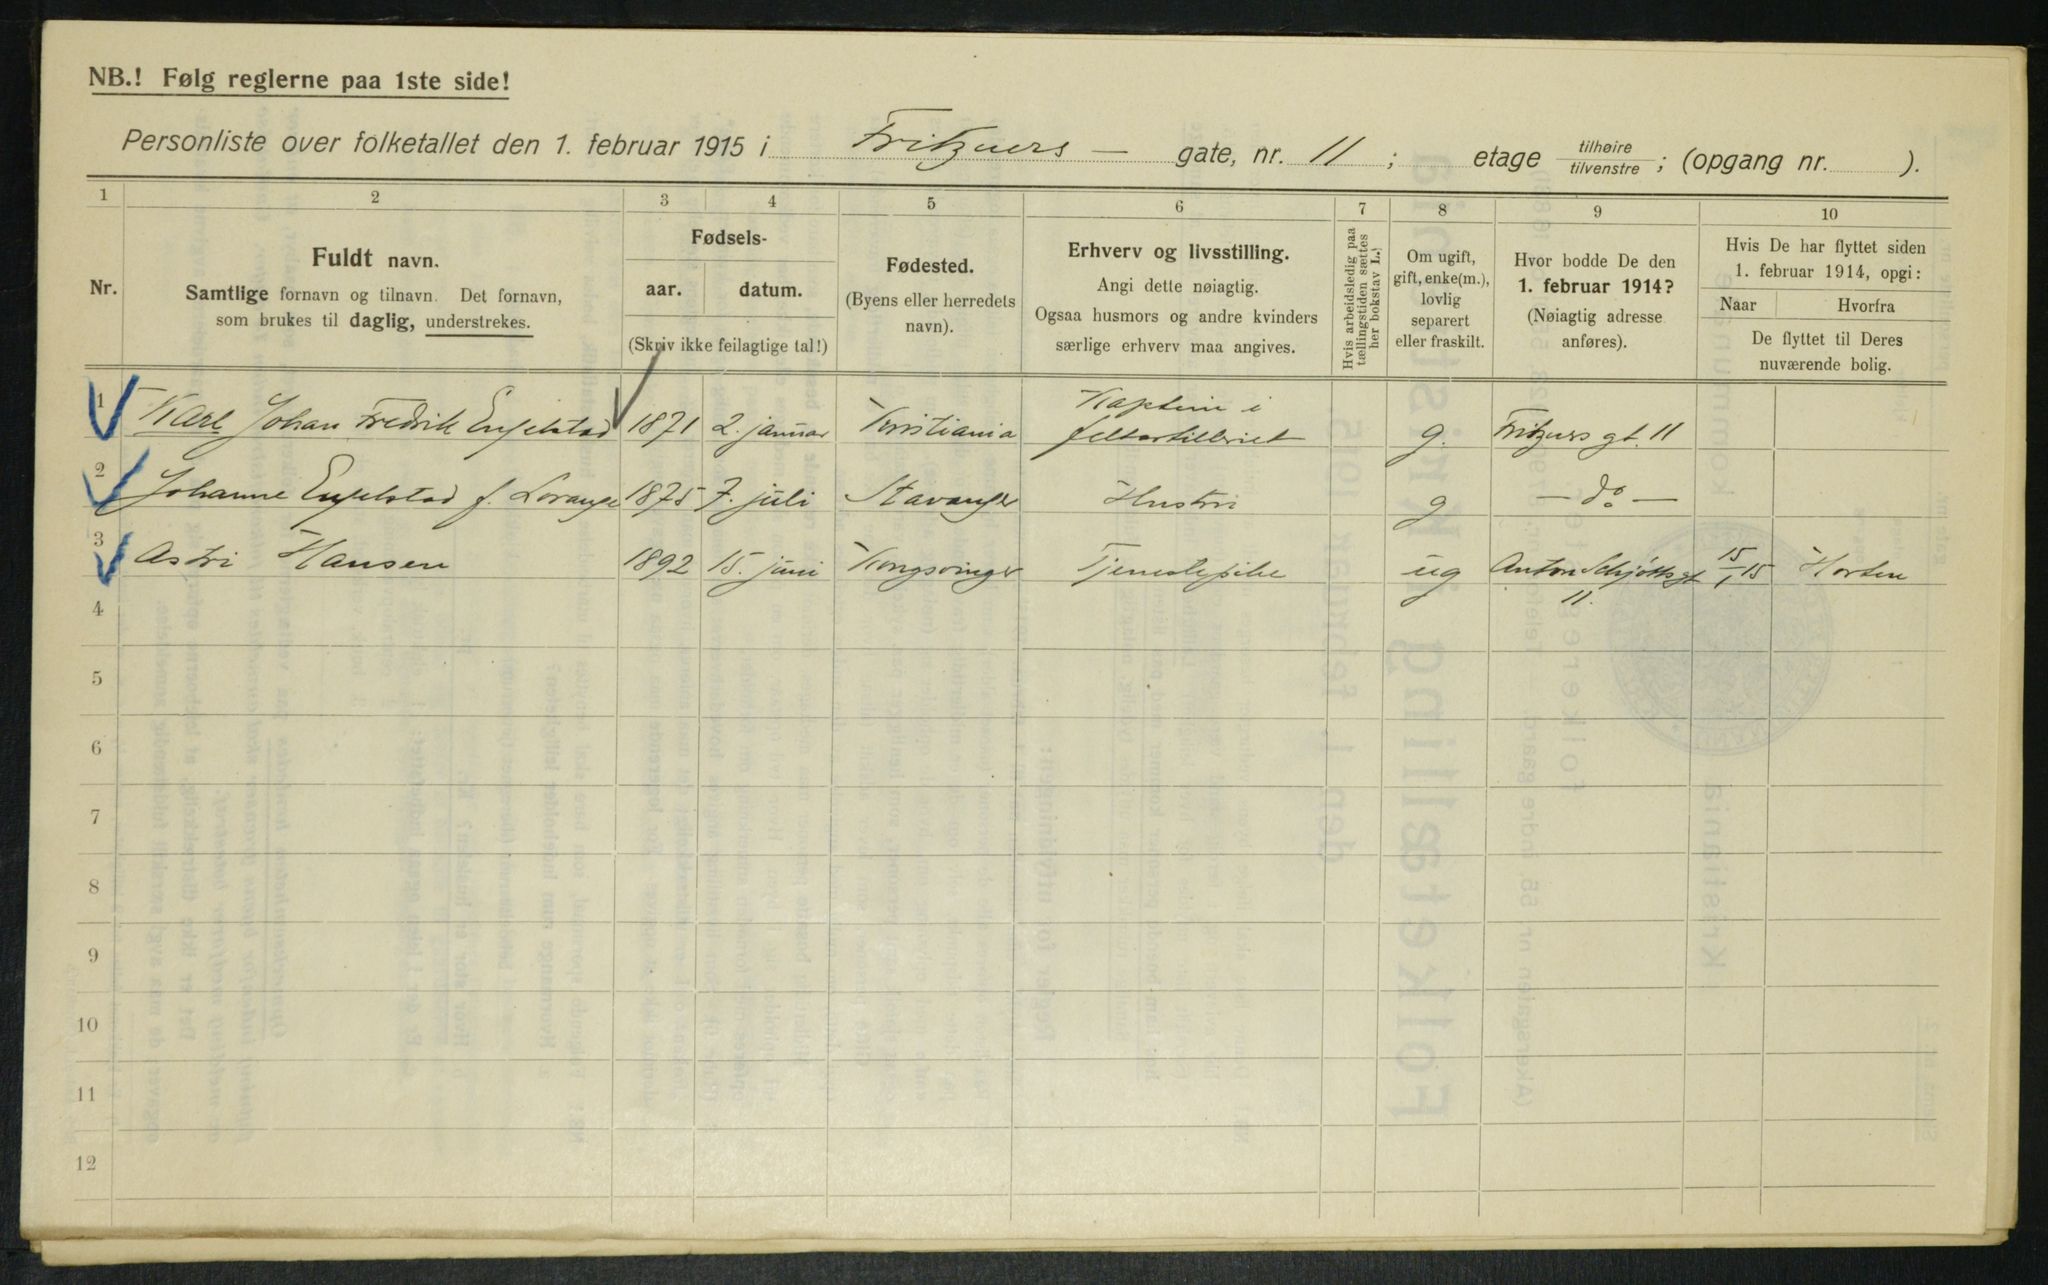 NB.! Følg reglerne paa 1ste side!
Personliste over folketallet den 1. februar 1915 i Fritzners — gate, nr. 11 ; etage tilhøire tilvenstre ; (opgang nr. ).
1 2 3 4 5 6 7 8 9 10
Nr.
Fuldt navn.
Samtlige fornavn og tilnavn. Det fornavn,
som brukes til daglig, understrekes.
Fødsels-
aar. datum.
(Skriv ikke feilagtige tal!)
Fødested.
(Byens eller herredets
navn).
Erhverv og livsstilling.
Angi dette nøiagtig.
Ogsaa husmors og andre kvinders
særlige erhverv maa angives.
Hvis arbeidsledig paa
tællingstiden sættes
her bokstav L.)
Om ugift,
gift, enke(m.),
lovlig
separert
eller fraskilt.
Hvor bodde De den
1. februar 1914?
(Nøiagtig adresse
anføres).
Hvis De har flyttet siden
1. februar 1914, opgi:
Naar Hvorfra
De flyttet til Deres
nuværende bolig.
1 Karl Johan Fredrik Engelstad 1871 2. januar Kristiania Kaptein i feltartilleriet g. Fritzners gt. 11
2 Johanne Engelstad f. Lorange 1875 7. juli Stavanger Hustru g — do —
3 Astri Hansen 1892 15. juni Kongsvinger Tjenestepike ug Anton Schjøttsgt 11. 15/1 15 Horten
4
5
6
7
8
9
10
11
12